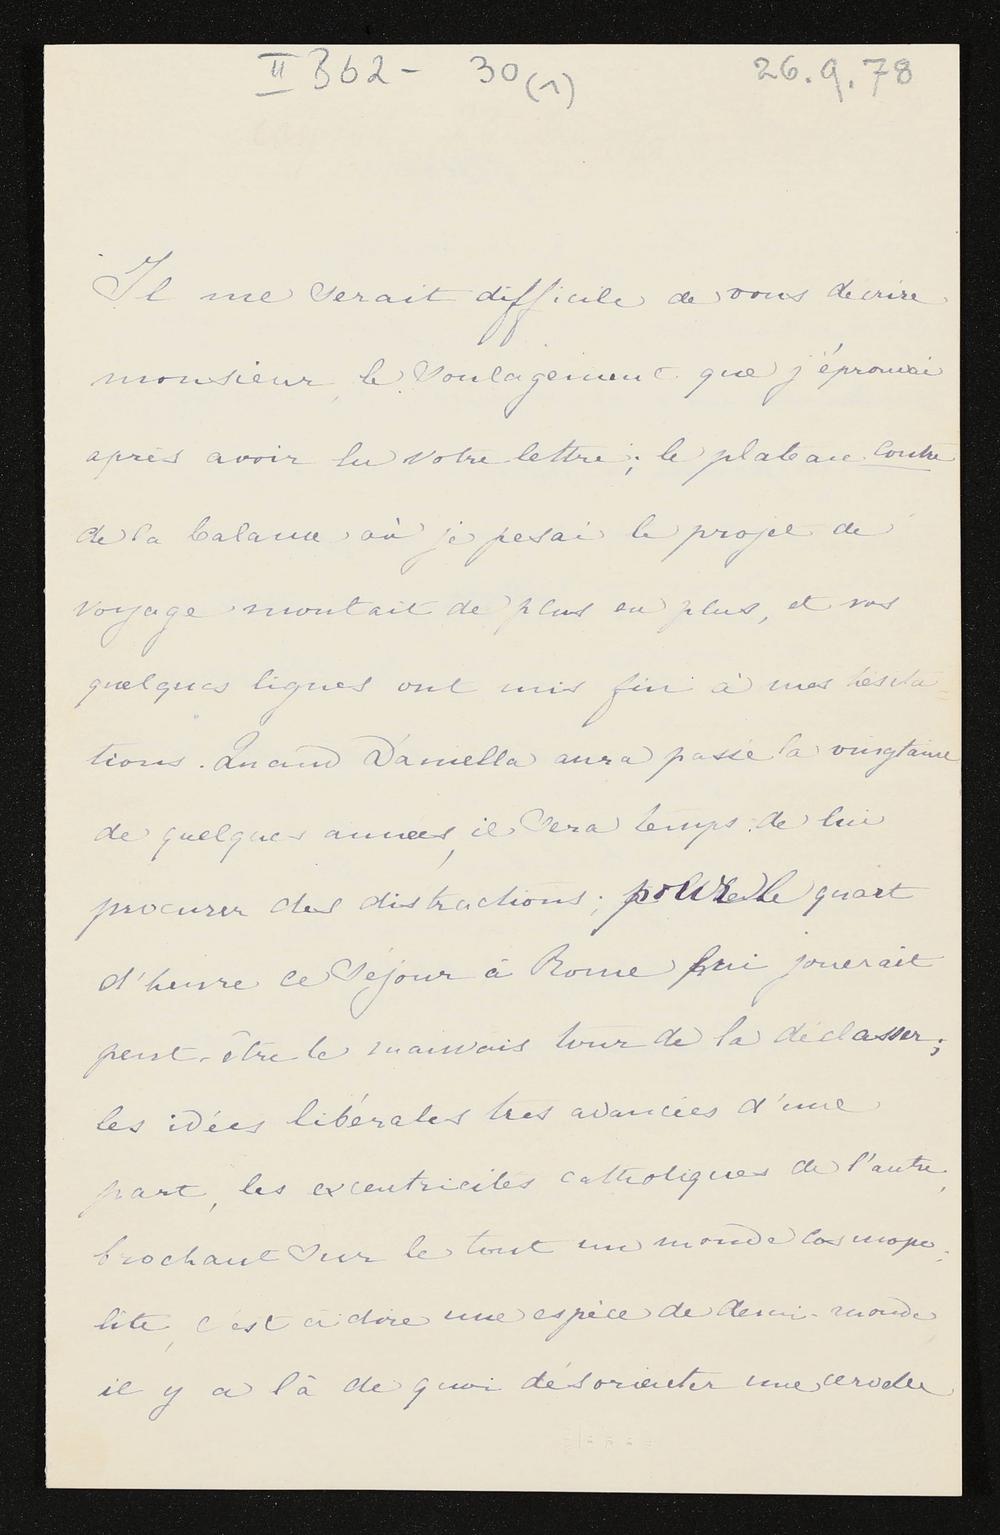 II B62 - 30(1) 26.9.78
Il me serait difficile de vous décrire
monsieur, le soulagement que j'éprouvai
après avoir lu votre lettre; le plateau contre
de la balance où je pesai le projet de
voyage montait de plus en plus, et vos
quelques lignes ont mis fin à mes hésita=
tions. Quand Daniella aura passé la vingtaine
de quelques années, il sera temps de lui
procurer des distractions; pour le quart
d'heure ce séjour à Rome lui jouerait
peut-être le mauvais tour de la déclasser;
les idées libérales très avancées d'une
part, les excentricités catholiques de l'autre,
brochant sur le tout un monde cosmopo=
lite, c'est à dire une espèce de demi-monde,
il y a là de quoi désorienter une cervelle